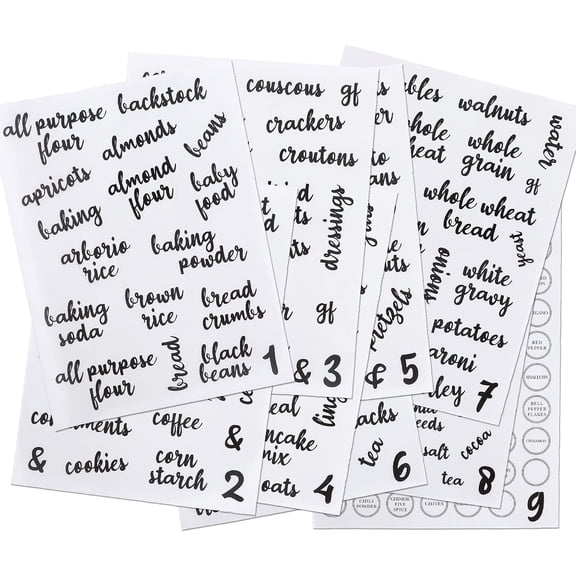 all purpose
flour
backstock
almonds
beans
apricots
almond
flour
baby
food
baking
arborio
rice
baking
powder
baking
soda
brown
rice
bread
crumbs
all purpose
flour
bread
black
beans
1
&
cookies
coffee
corn
starch
&
2
couscous
gf
crackers
croutons
dressings
gf
& 3
oats
4
pretzels
& 5
tea
6
walnuts
water
whole
grain
gf
whole wheat
bread
yeast
onions
white
gravy
potatoes
7
salt
cocoa
tea
8
RED
PEPPER
SHALLOTS
BELL
PEPPER
FLAKES
CINNAMON
CHILI
POWDER
CHINESE
FIVE
SPICE
CHIVES
9